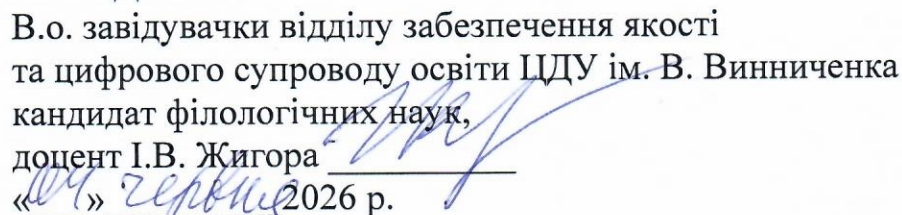 В.о. завідувачки відділу забезпечення якості
та цифрового супроводу освіти ЦДУ ім. В. Винниченка
кандидат філологічних наук,
доцент І.В. Жигора
«04» червня 2026 р.